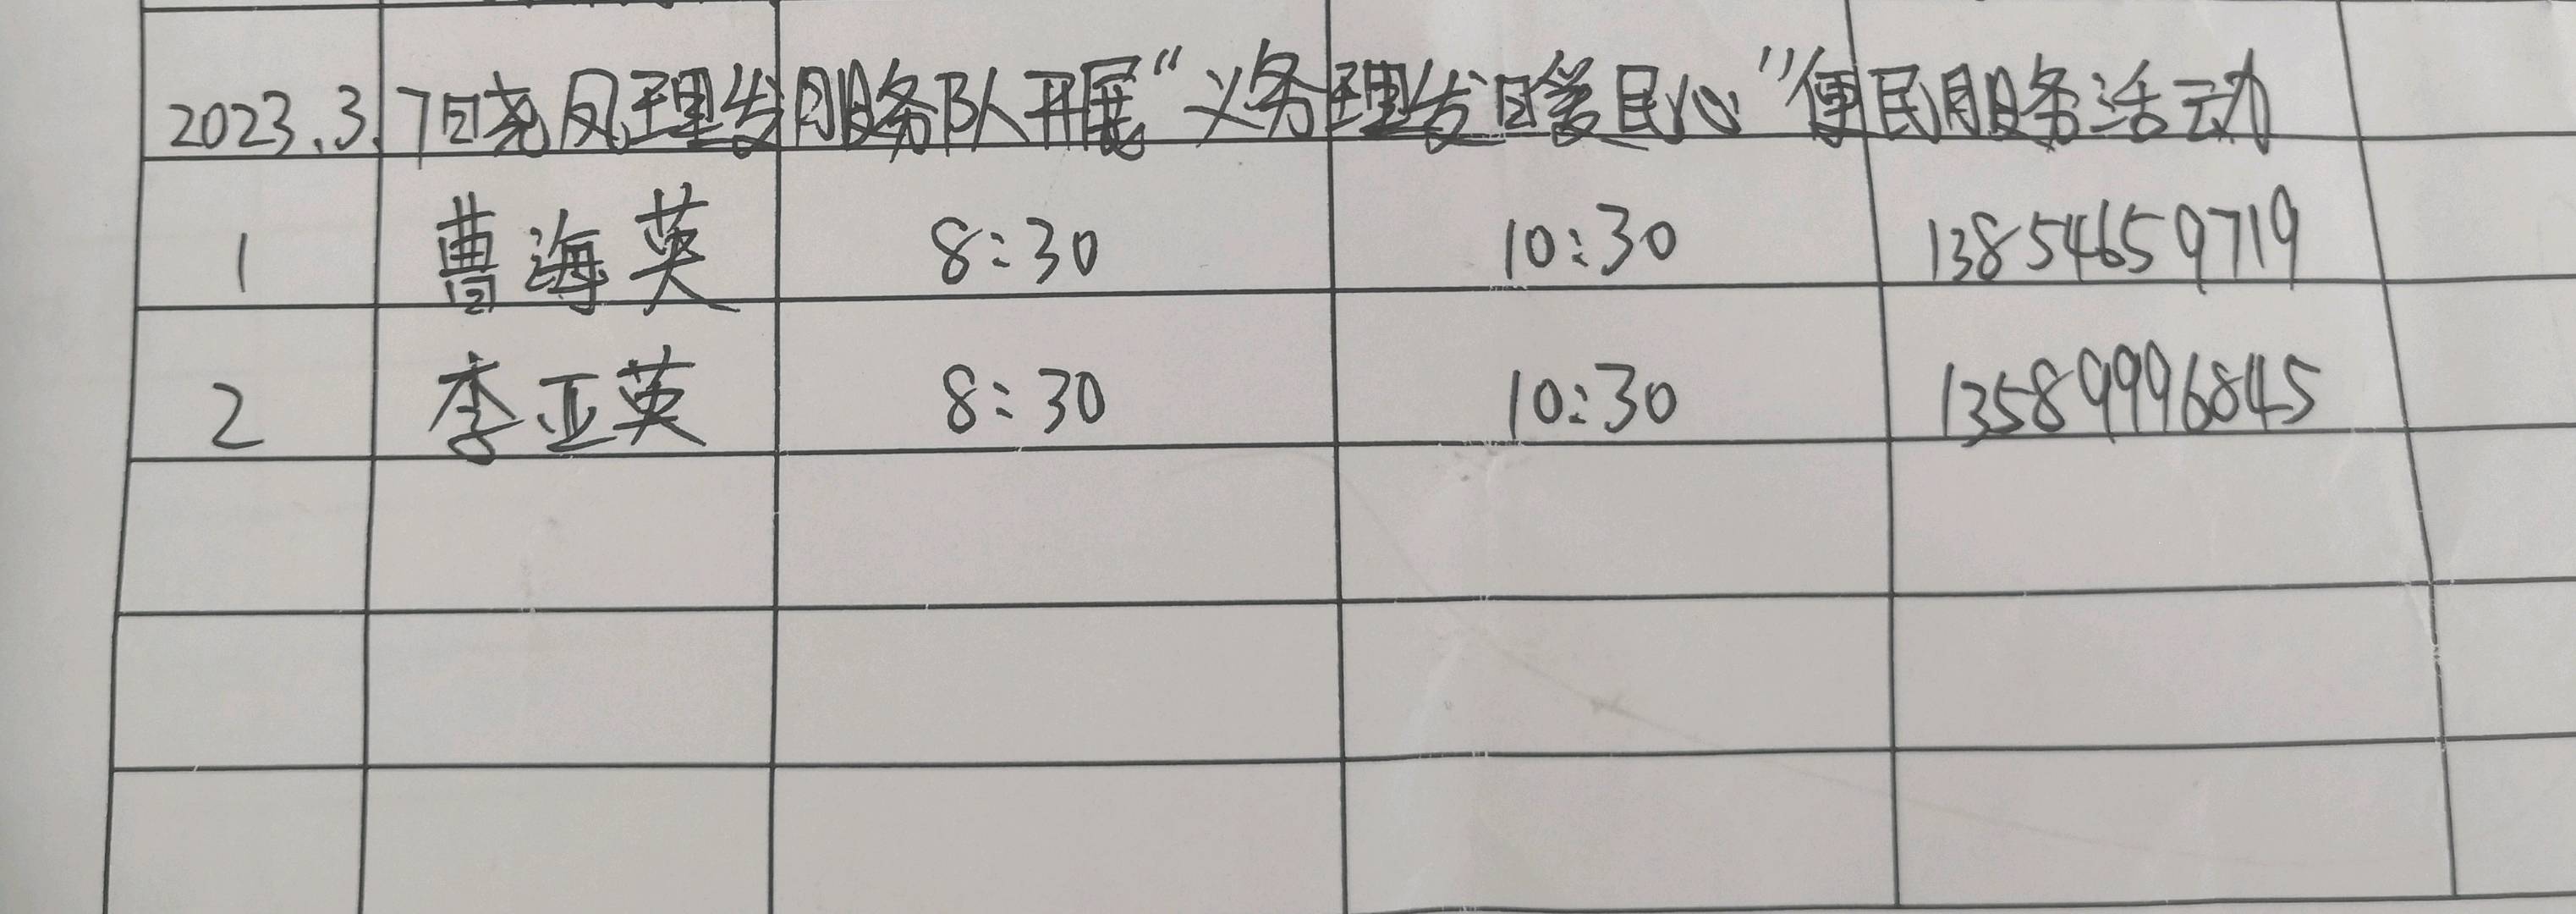 2023.3.7日晓风理发服务队开展“义务理发日暖民心”便民服务活动
1 曹海英 8:30 10:30 13854659719
2 李亚英 8:30 10:30 13589996845